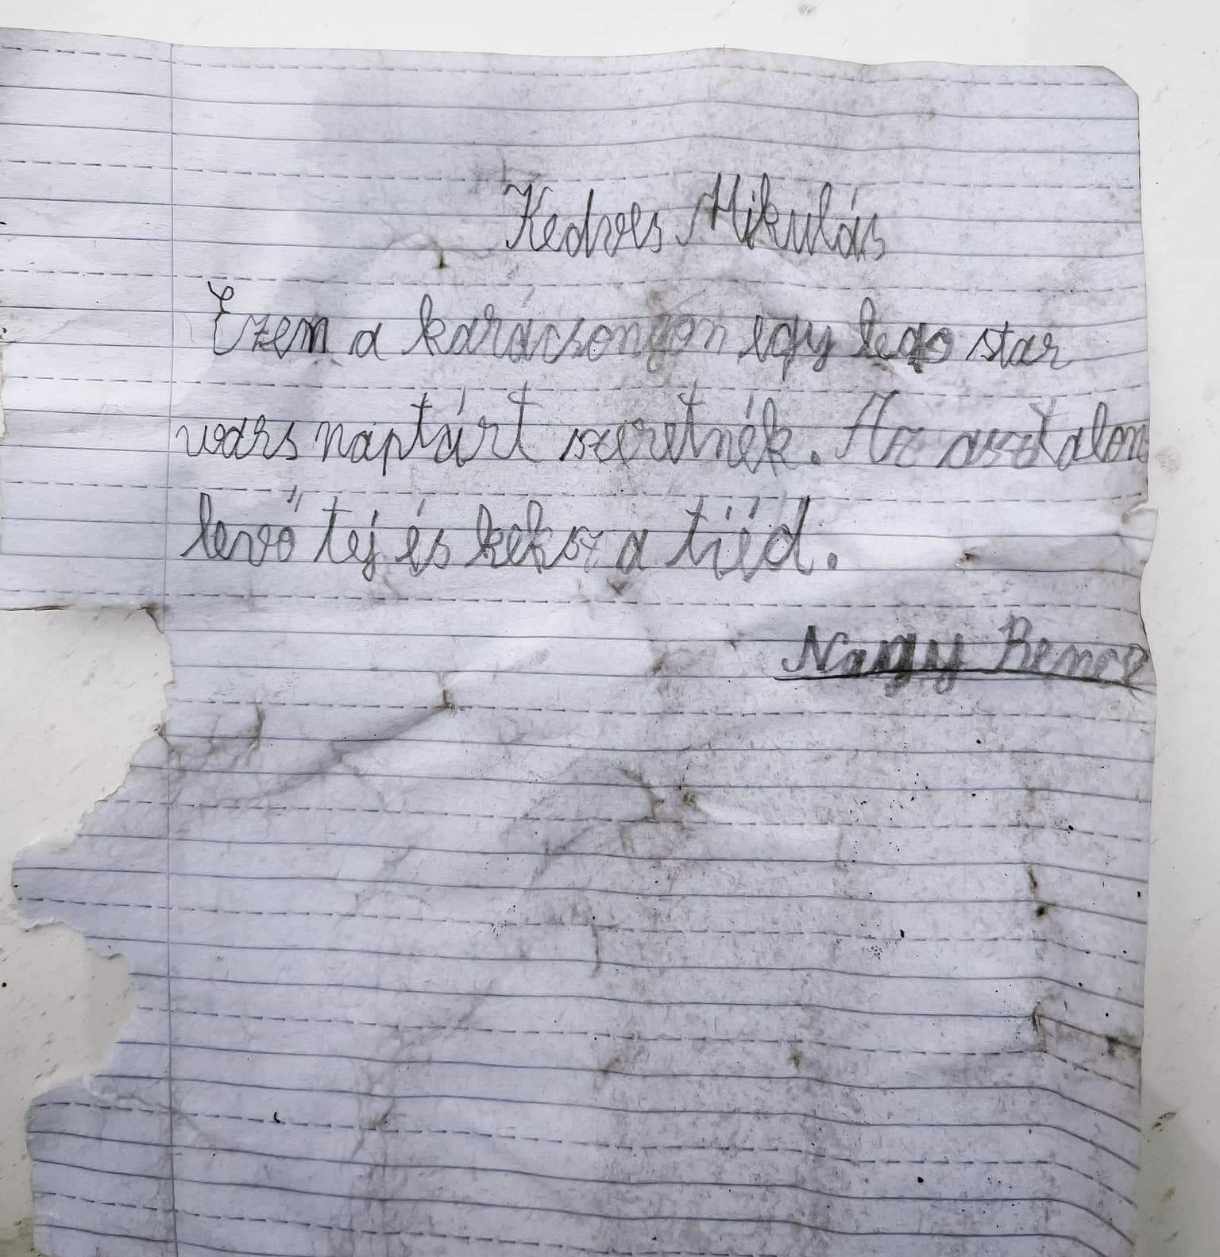 Kedves Mikulás
Ezen a karácsonyon egy lego star
wars naptárt szeretnék. Az asztalon
levő tej és keksz a tiéd.
Nagy Bence